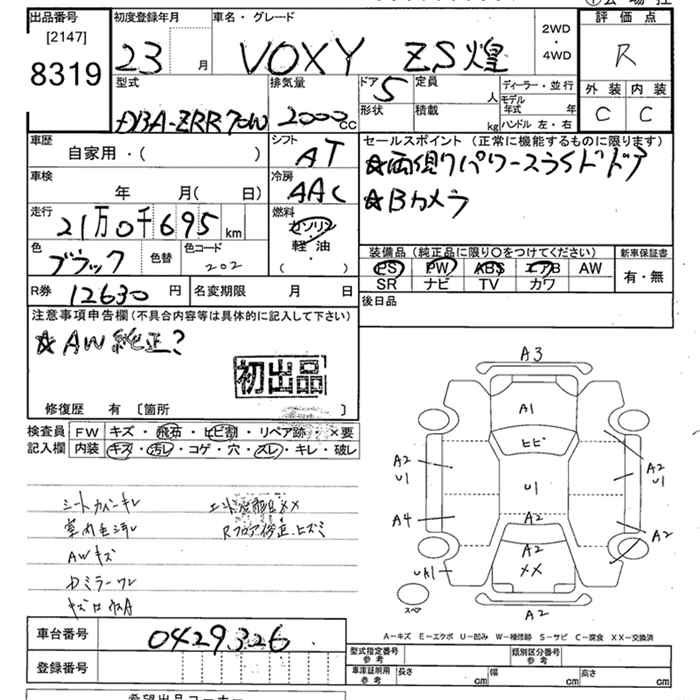 出品番号
[2147]
8319
初度登録年月
23 月
車名・グレード
VOXY ZS煌
2WD
・
4WD
評価点
R
外装 内装
C C
型式
DBA-ZRR70W
排気量
2000 CC
ドア 5
形状
定員 人
積載 kg
ディーラー・並行
モデル年式 年
ハンドル 左・右
車歴
自家用・( )
シフト
AT
車検
年 月( 日)
冷房
AAC
走行
21万0千695 km
燃料
ガソリン
軽油
( )
色
ブラック
色替
色コード
202
R券 12630 円
名変期限 月 日
セールスポイント (正常に機能するものに限ります)
☆両側パワースラドドア
☆Bカメラ
装備品 (純正品に限り○をつけてください)
PS PW ABS エアB AW
SR ナビ TV カワ
新車保証書
有・無
後日品
注意事項申告欄(不具合内容等は具体的に記入して下さい)
☆AW純正?
初出品
修復歴 有 〔箇所 〕
検査員 FW キズ・飛石・ヒビ割・リペア跡・×要
記入欄 内装 キズ・汚レ・コゲ・穴・スレ・キレ・破レ
シートカバーキレ
室内色汚レ
Rフロア修正、ヒズミ
AWキズ
Dミラーワレ
A3
A1
ヒビ
A2
U1
U1
A2
U1
A4
A2
A2
A2
XX
UA1
スペア
A2
A－キズ E－エクボ U－凹み W－補修跡 S－サビ C－腐食 XX－交換済
車台番号
0429326
登録番号
型式指定番号
参考
類別区分番号
参考
車庫証明用
参考
長さ cm 幅 cm 高さ cm
希望出品コーナー